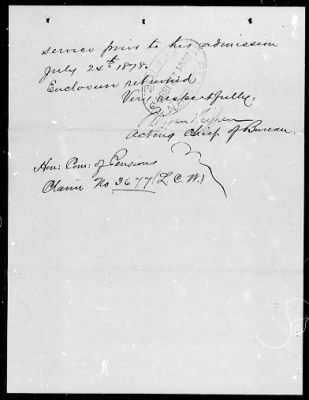 service prior to his admission
July 24th 1878.
Enclosure returned
Very respectfully,
Acting Chief of Bureau.
Hon: Com: of Pensions
Claim No 3677 (L.C.W.)